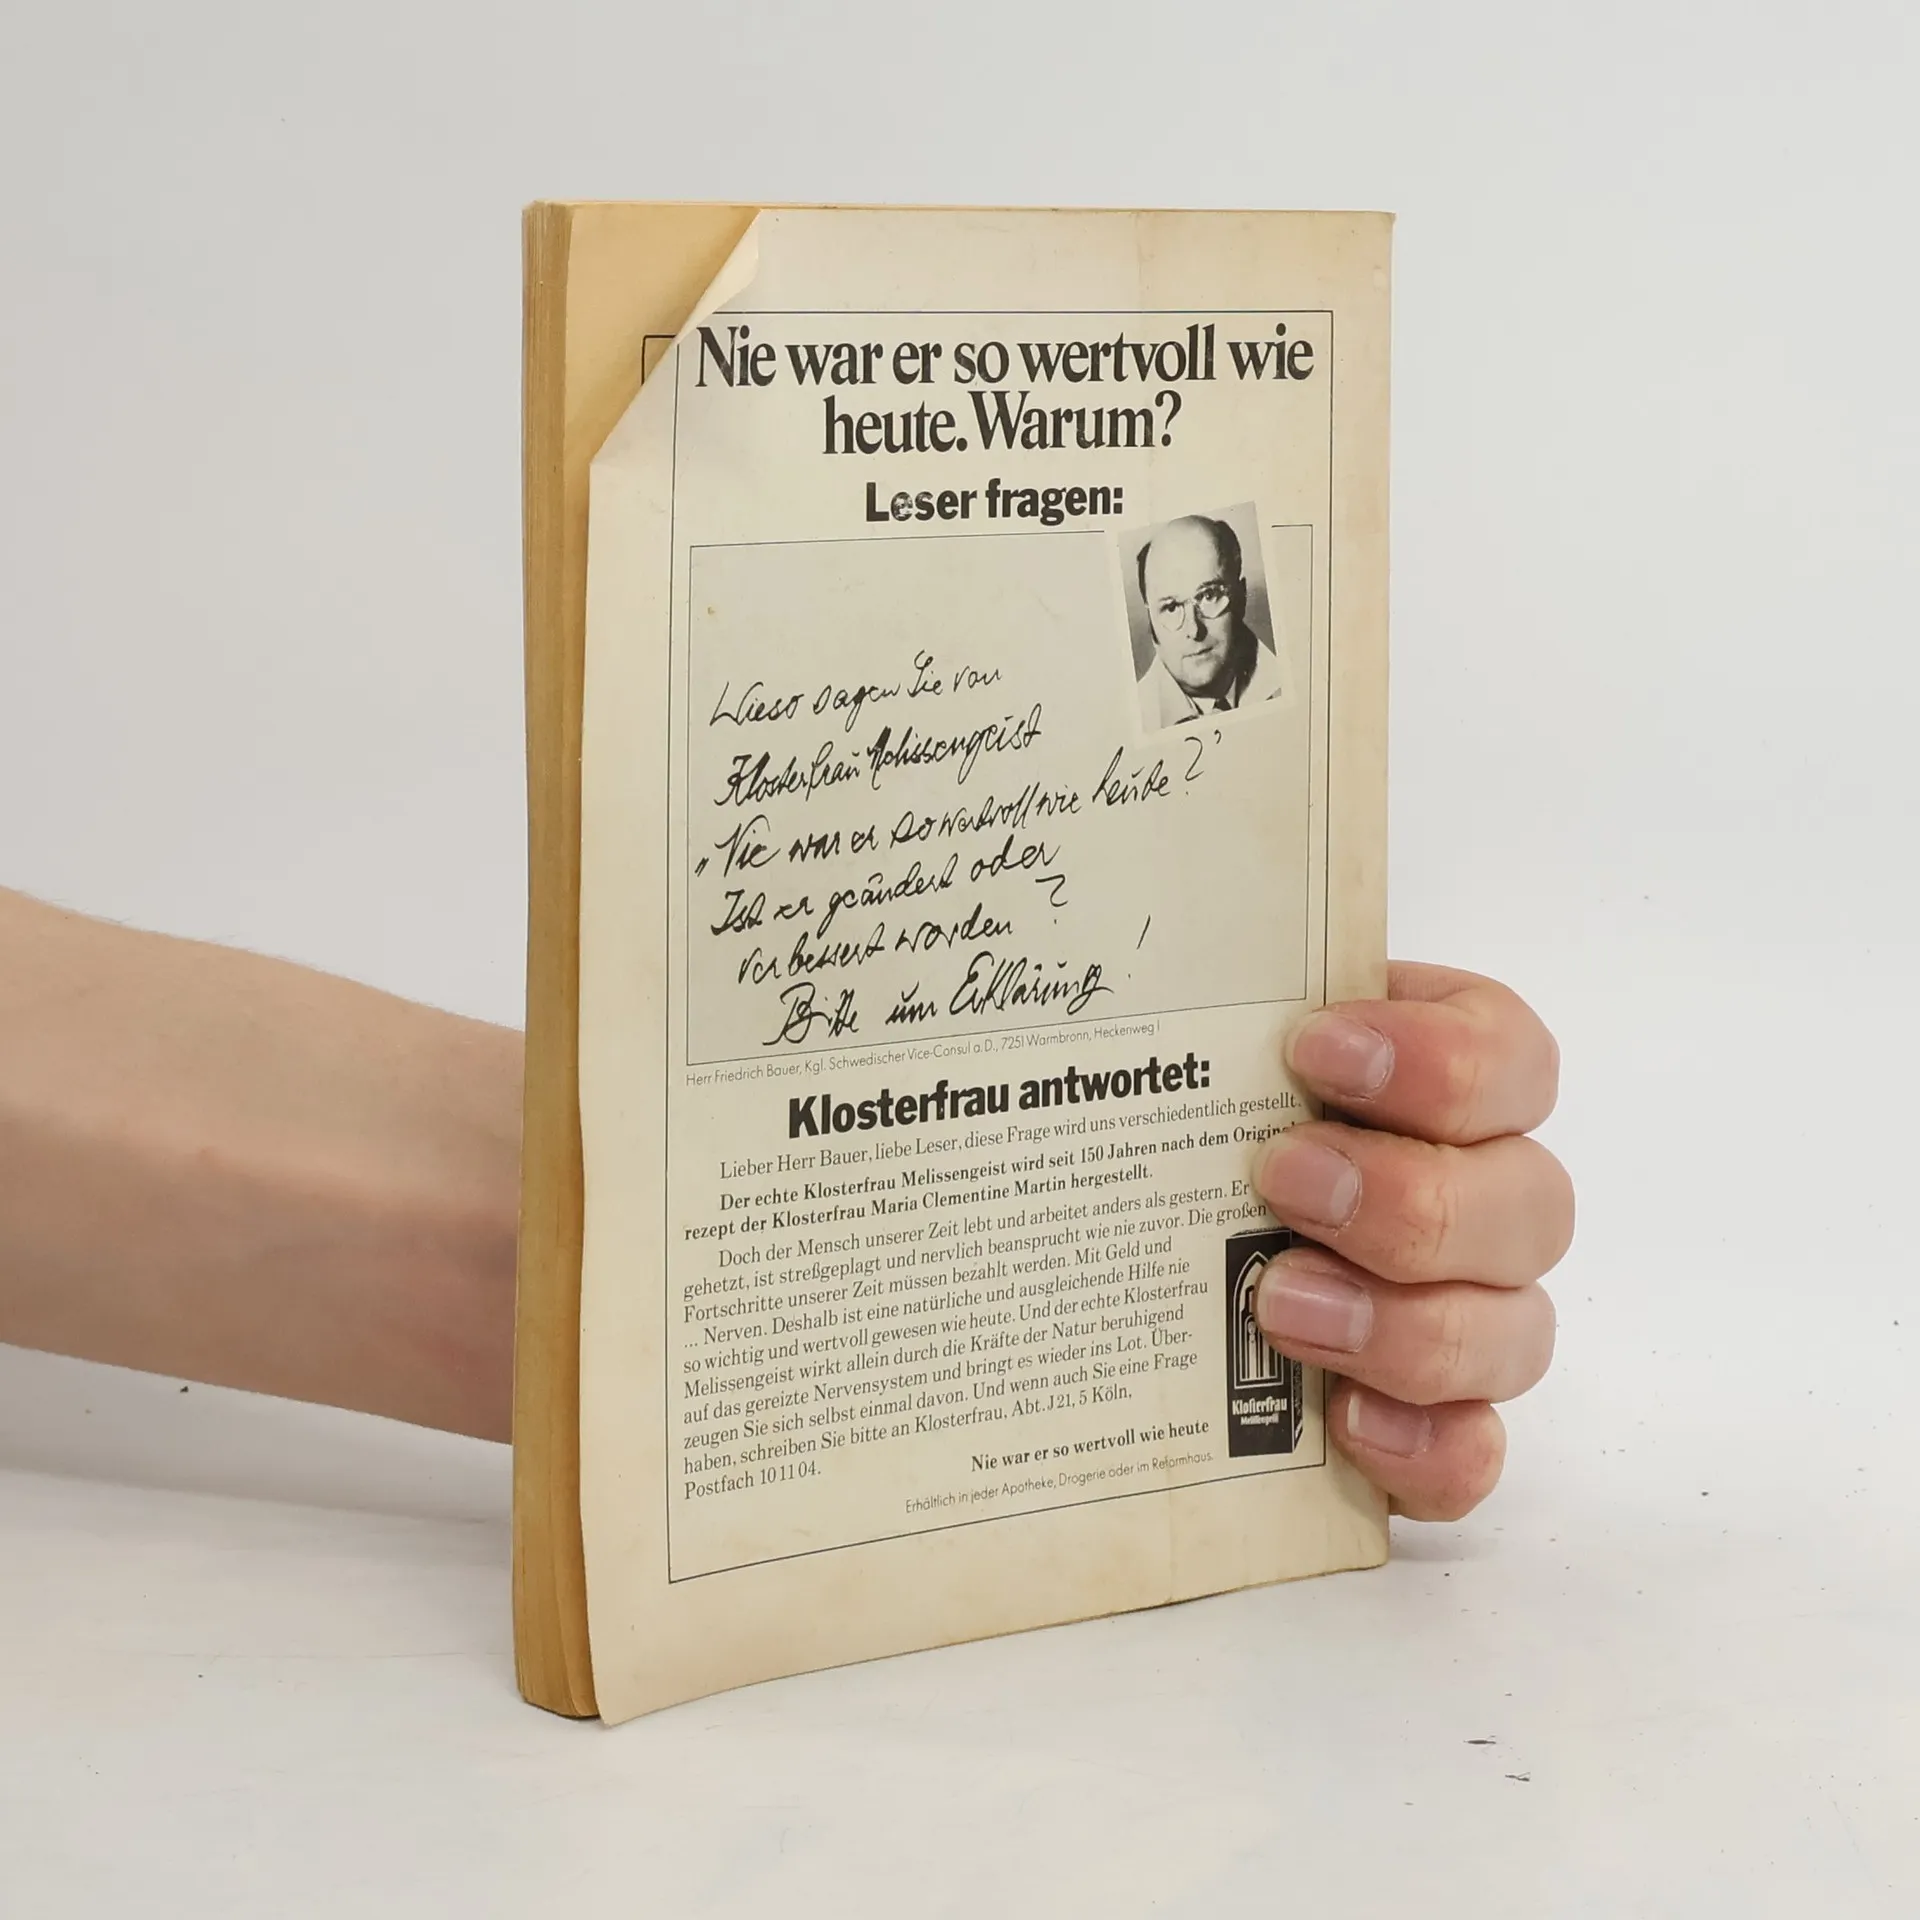 Nie war er so wertvoll wie
heute. Warum?
Leser fragen:
Wieso sagen Sie von
Klosterfrau Melissengeist
„Nie war er so wertvoll wie heute?"
Ist er geändert oder
verbessert worden?
Bitte um Erklärung!
Herr Friedrich Bauer, Kgl. Schwedischer Vice-Consul a. D., 7251 Warmbronn, Heckenweg 1
Klosterfrau antwortet:
Lieber Herr Bauer, liebe Leser, diese Frage wird uns verschiedentlich gestellt.
Der echte Klosterfrau Melissengeist wird seit 150 Jahren nach dem Original
rezept der Klosterfrau Maria Clementine Martin hergestellt.
Doch der Mensch unserer Zeit lebt und arbeitet anders als gestern. Er
gehetzt, ist streßgeplagt und nervlich beansprucht wie nie zuvor. Die großen
Fortschritte unserer Zeit müssen bezahlt werden. Mit Geld und
... Nerven. Deshalb ist eine natürliche und ausgleichende Hilfe nie
so wichtig und wertvoll gewesen wie heute. Und der echte Klosterfrau
Melissengeist wirkt allein durch die Kräfte der Natur beruhigend
auf das gereizte Nervensystem und bringt es wieder ins Lot. Über-
zeugen Sie sich selbst einmal davon. Und wenn auch Sie eine Frage
haben, schreiben Sie bitte an Klosterfrau, Abt. J 21, 5 Köln,
Postfach 10 11 04.
Nie war er so wertvoll wie heute
Erhältlich in jeder Apotheke, Drogerie oder im Reformhaus.
Klosterfrau
Melissengeist